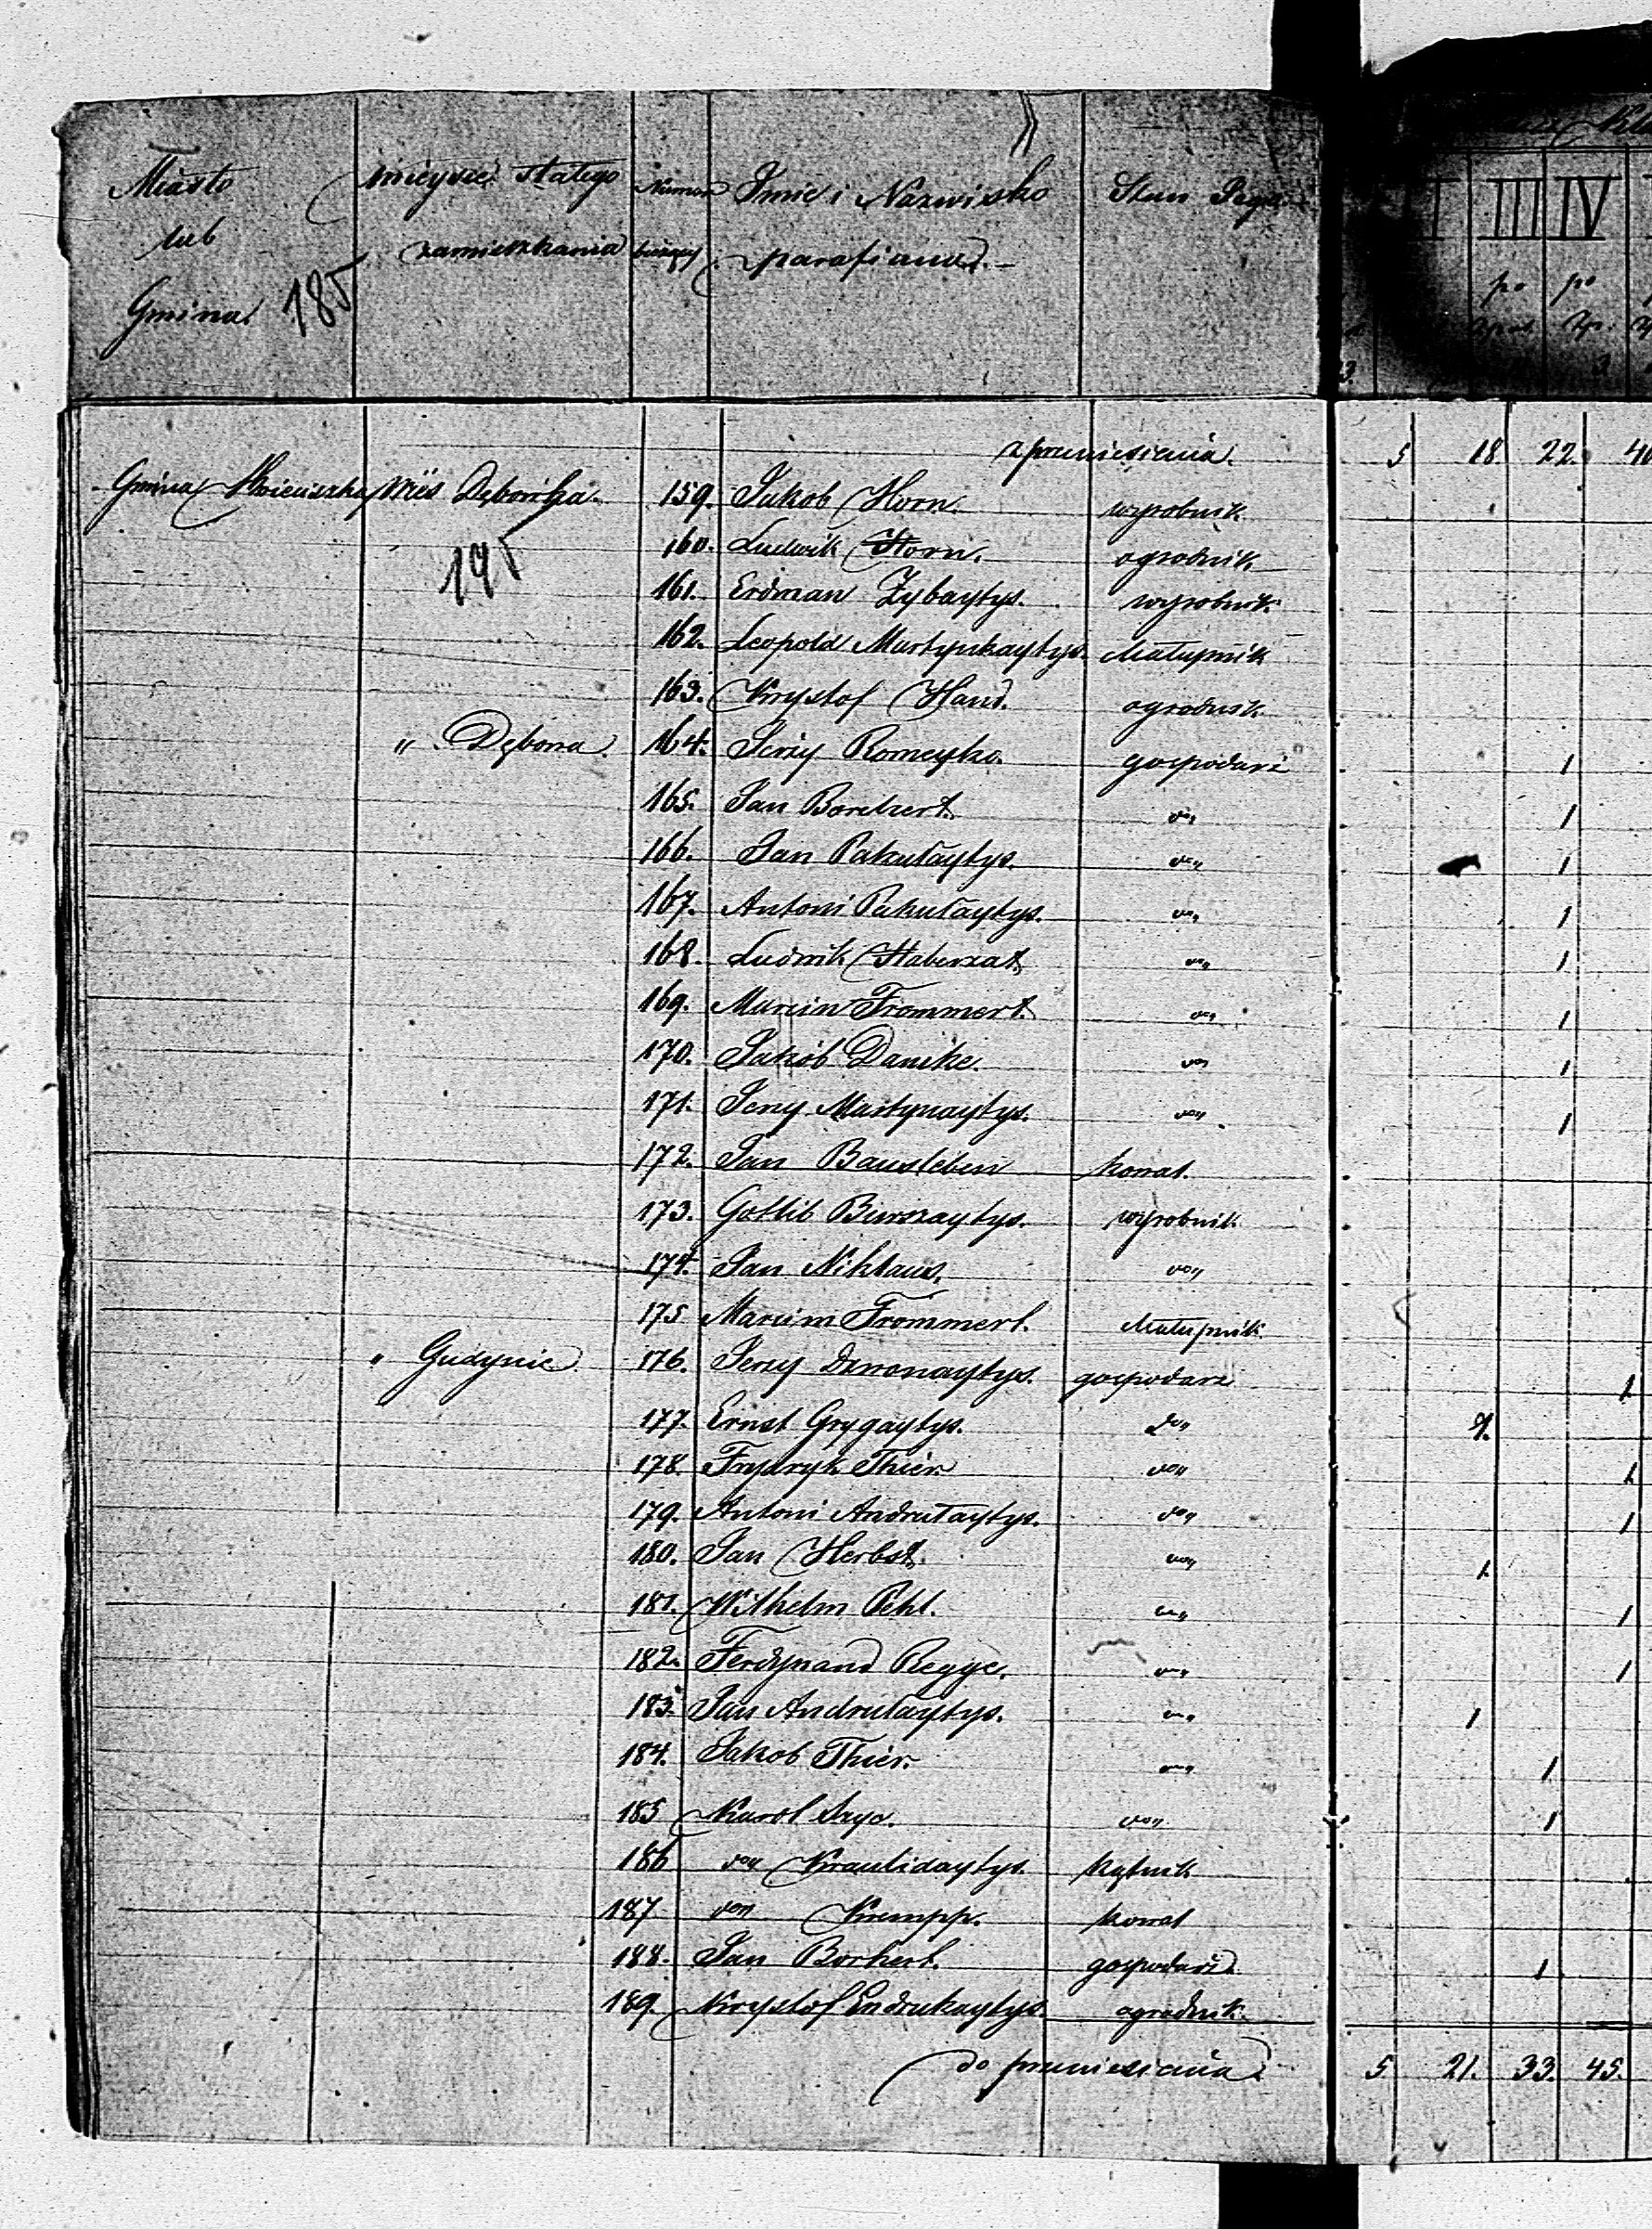 Miasto lub Gmina. 185
mieysce stałego zamieszkania
Numer bieżący
Imie i Nazwisko parafiana.
Stan Jego
III IV
po po
3.
z przeniesienia. 5 18 22. 40
Gmina wieś Dęborka. 159. Jakob Horn. wyrobnik
195
160. Ludwik Horn. ogrodnik
161. Erdman Zybaytys. wyrobnik
162. Leopold Martynkaytys. chałupnik
163. Krystof Hand. ogrodnik
" Dębowa 164. Jerzy Romeyko. gospodarz 1
165. Jan Borchert. do" 1
166. Jan Pakułaytys. do" 1
167. Antoni Pakułaytys. do" 1
168. Ludwik Haberzat. do" 1
169. Marcin Frommert. do" 1
170. Jakób Danike. do" 1
171. Jerzy Martynaytys. do" 1
172. Jan Bausleben kowal.
173. Gottlib Burszaytys. wyrobnik
174. Jan Niklaus. do"
175 Marcin Frommert. chałupnik
" Gudynie 176. Jerzy gospodarz 1
177. Ernst Grygaytys. do" 1.
178. Frydryk Thier do" 1
179. Antoni Andrułaytys. do" 1
180. Jan Herbst. do" 1
181. Wilhelm Pehl. do" 1
182. Ferdynand Regge. do" 1
183. Jan Andrułaytys. do" 1
184. Jakob Thier. do" 1
185 Karol Szyc. do" 1
186 do" Kraulidaytys. kątnik
187 do" Krempp. kowal
188. Jan Borhert. gospodarz 1
189. Krystof Endrukaytys. ogrodnik.
do przeniesienia 5 21. 33. 45.